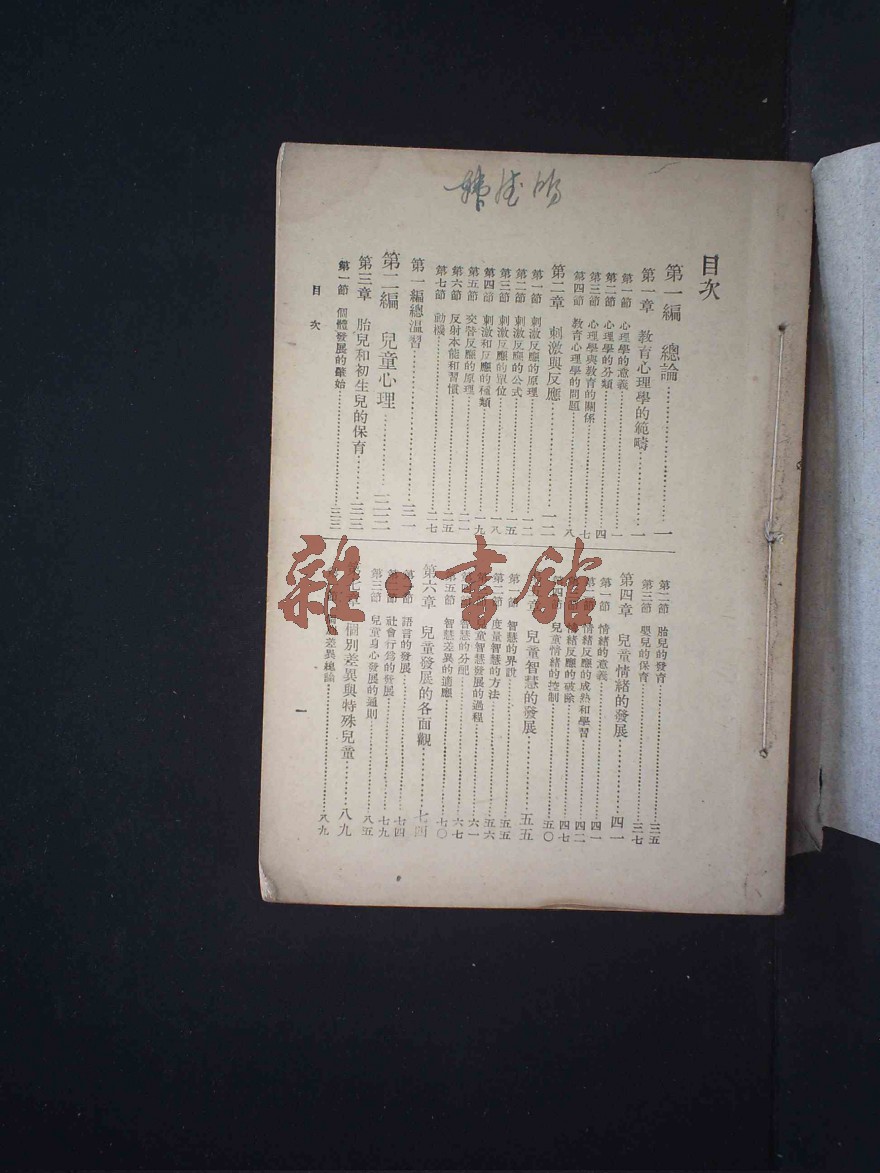 目次
第一編　總論…………一
第一章　教育心理學的範疇…………一
第一節　心理學的意義…………一
第二節　心理學的分類…………四
第三節　心理學與教育的關係…………七
第四節　教育心理學的問題…………八
第二章　刺激與反應…………一二
第一節　刺激反應的原理…………一二
第二節　刺激反應的公式…………一五
第三節　刺激反應的單位…………一八
第四節　刺激和反應的種類…………一九
第五節　交替反應的原理…………二二
第六節　反射本能和習慣…………二五
第七節　動機…………二七
第一編總温習…………三一
第二編　兒童心理…………三三
第三章　胎兒和初生兒的保育…………三三
第一節　個體發展的肇始…………三三
第二節　胎兒的發育…………三五
第三節　嬰兒的保育…………三七
第四章　兒童情緒的發展…………四一
第一節　情緒的意義…………四一
情緒反應的成熟和學習…………四二
情緒反應的破除…………四七
第四節　兒童情緒的控制…………五〇
兒童智慧的發展…………五五
第一節　智慧的界說…………五五
第二節　度量智慧的方法…………五六
兒童智慧發展的過程…………六一
智慧的分配…………六七
第五節　智慧差異的適應…………七〇
第六章　兒童發展的各面觀…………七四
語言的發展…………七四
社會行爲的發展…………七九
第三節　兒童身心發展的通則…………八五
第七章　個別差異與特殊兒童…………八九
個別差異總論…………八九
目次
一
雜·書館